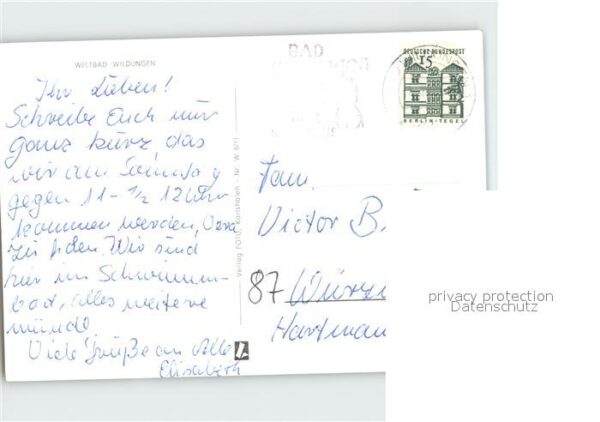 WELTBAD WILDUNGEN
Ihr Lieben!
Schreibe Euch nur
ganz kurz, das
wir am Sonntag
gegen 11 - 1/2 12 Uhr
kommen werden,
Wir sind
hier im Schwimm-
bad, alles weitere
mündl.
Viele Grüße an Alle
Elisabeth
Verlag FOTO
Nr. W 6/11
BAD
DEUTSCHE BUNDESPOST
15
BERLIN-TEGEL
Fam.
Victor B.
87 Würz
Hartman
privacy protection
Datenschutz